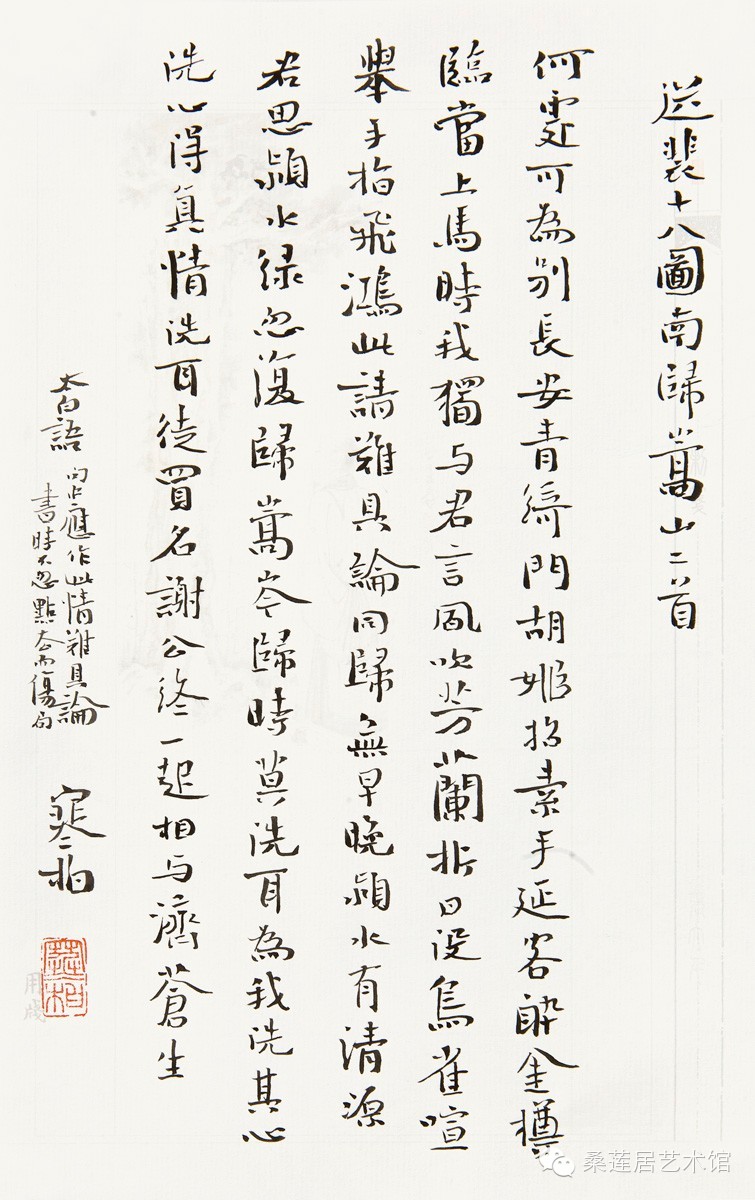 送裴十八圖南歸嵩山二首
何處可為別長安青綺門胡姬招素手延客醉金樽
臨當上馬時我獨与君言風吹芳蘭折日没鳥雀喧
舉手指飛鴻此請難具論同歸無早晚潁水有清源
君思潁水緑忽復歸嵩岑歸時莫洗耳為我洗其心
洗心得真情洗耳徒買名謝公終一起相与濟蒼生
太白語
應作此情難具論
書時不 點
寒柏
寒柏
用牋
桑莲居艺术馆